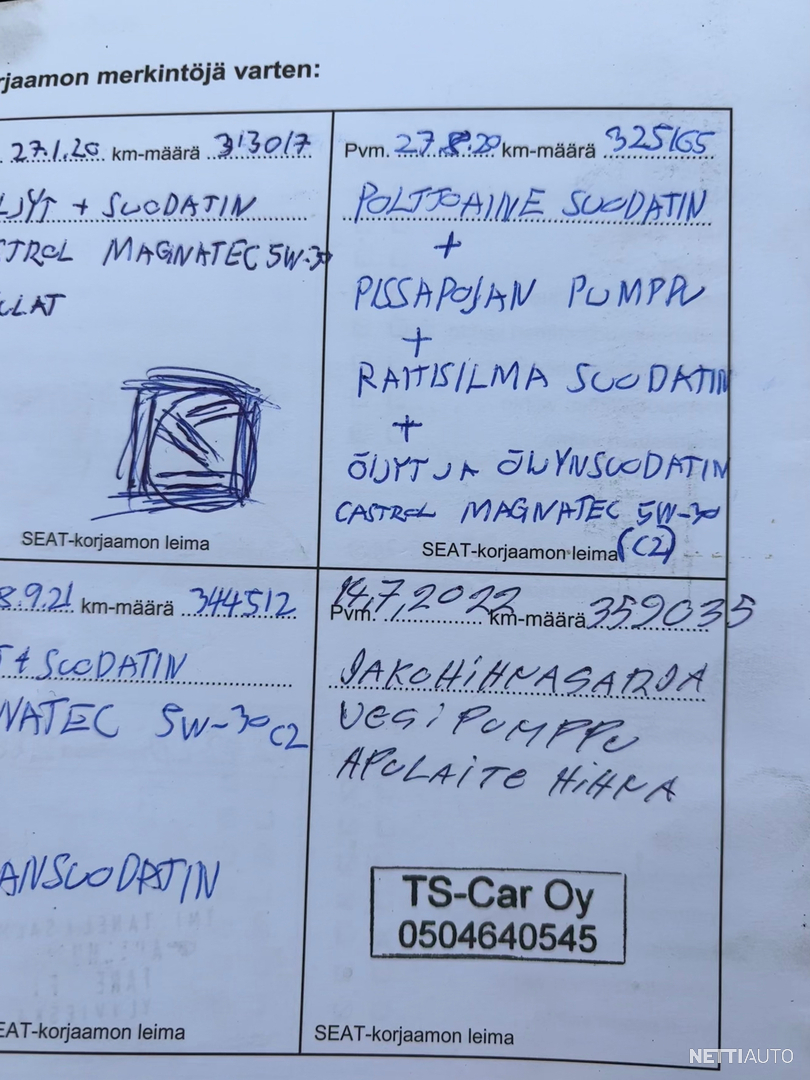 rjaamon merkintöjä varten:
27.1.20 km-määrä 313017
LJYT + SUODATIN
STROL MAGNATEC 5W-30
ULAT
SEAT-korjaamon leima
Pvm. 27.8.20 km-määrä 325165
POLTTOAINE SUODATIN
+
PISSAPOJAN PUMPPU
+
RAITISILMA SUODATIN
+
ÖLJYT JA ÖLJYNSUODATIN
CASTROL MAGNATEC 5W-30
SEAT-korjaamon leima (C2)
8.9.21 km-määrä 344512
T + SUODATIN
NATEC 5W-30 C2
ANSUODATIN
EAT-korjaamon leima
Pvm. 14.7.2022 km-määrä 359035
JAKOHiHNASARJA
VESi PUMPPU
APULAITE HiHNA
TS-Car Oy
0504640545
SEAT-korjaamon leima
NETTIAUTO